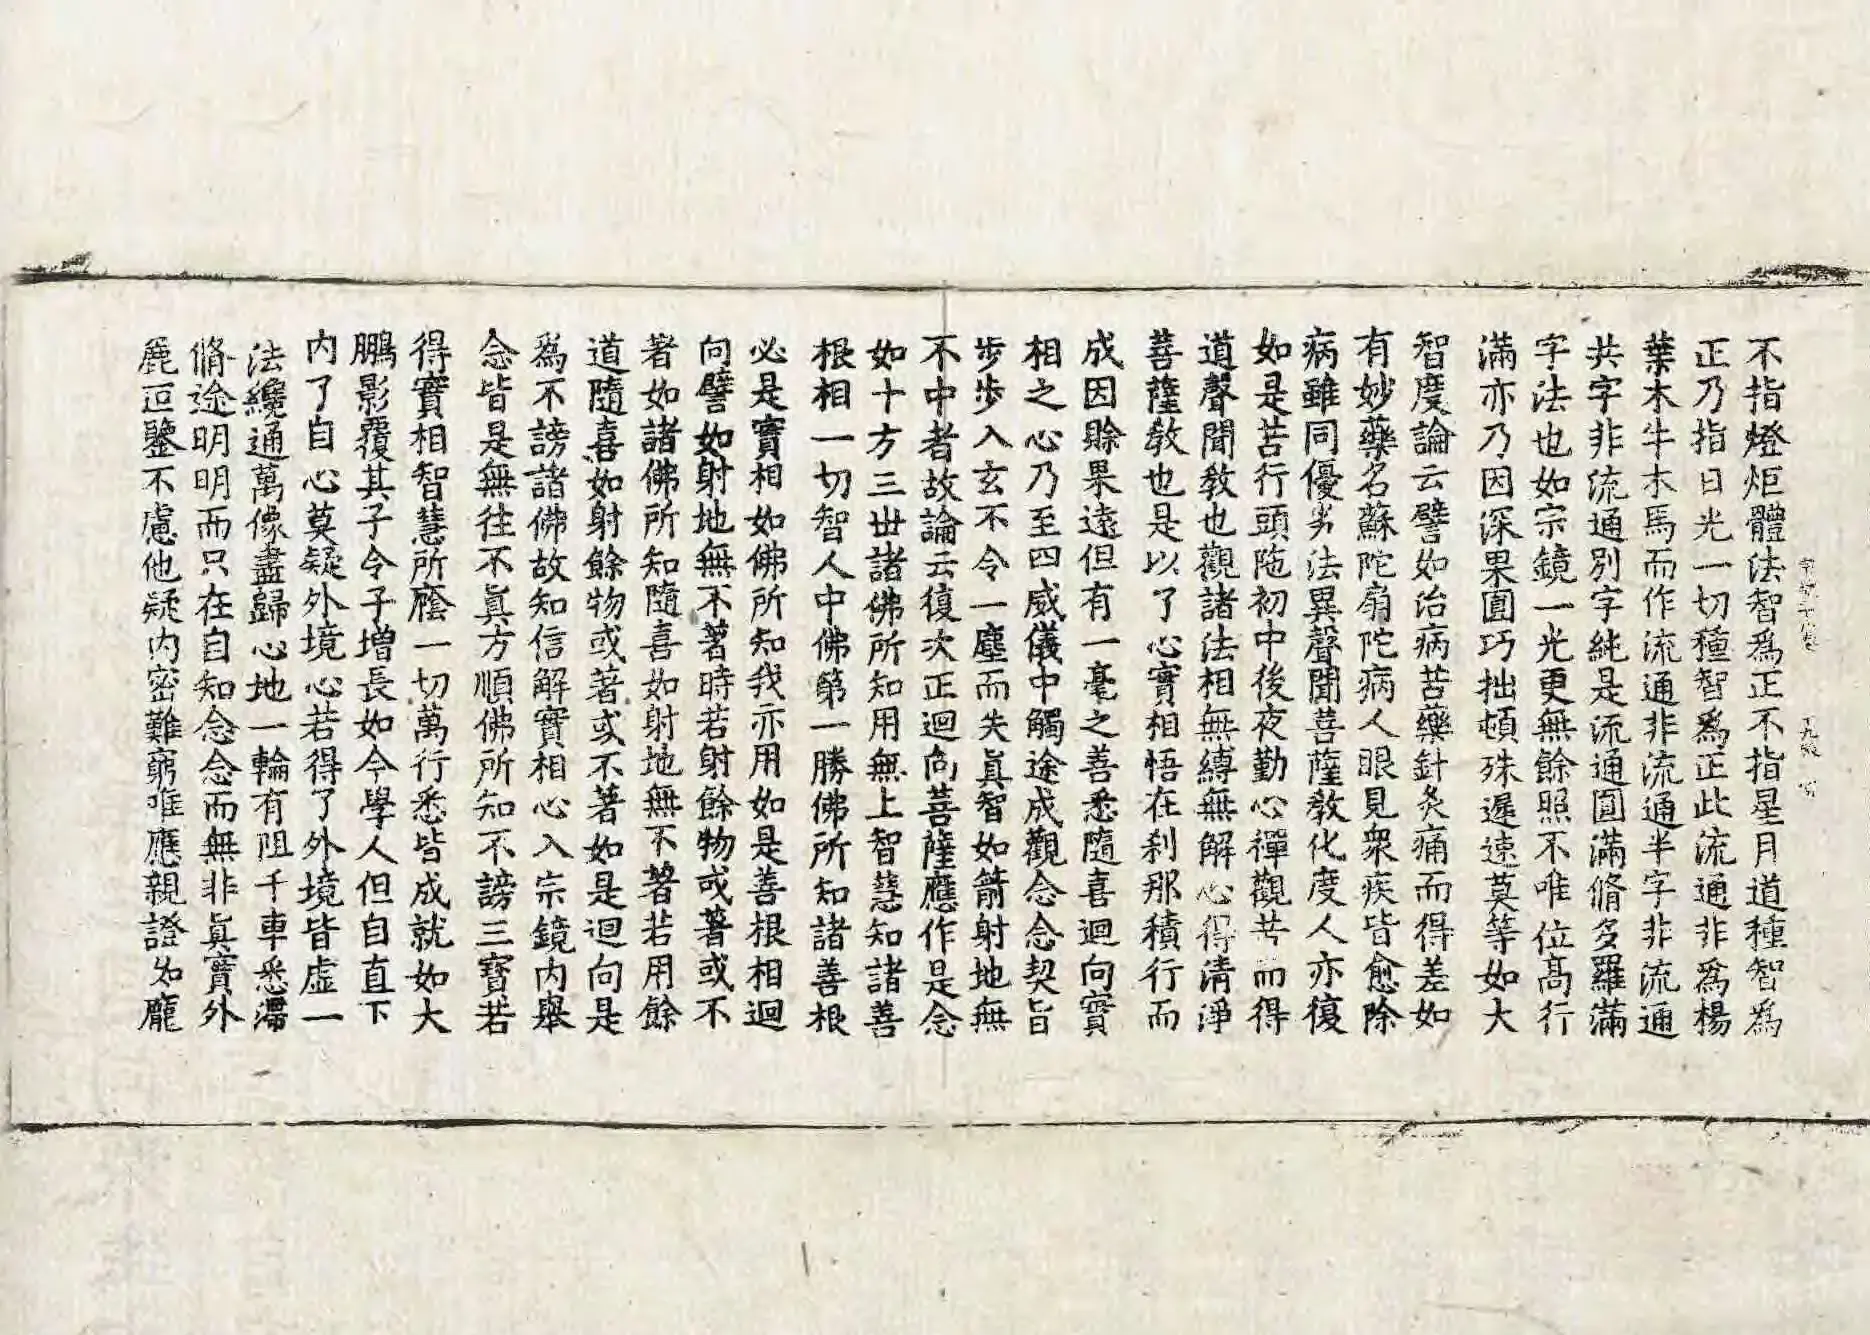 不指燈炬體法智爲正不指星月道種智爲
正乃指日光一切種智爲正此流通非爲楊
葉木牛木馬而作流通非流通半字非流通
共字非流通別字純是流通圓滿脩多羅滿
字法也如宗鏡一光更無餘照不唯位高行
滿亦乃因深果圓巧拙頓殊遲速莫等如大
智度論云譬如治病苦藥針灸痛而得差如
有妙藥名蘇陀扇陀病人眼見衆疾皆愈除
病雖同優劣法異聲聞菩薩教化度人亦復
如是苦行頭陁初中後夜勤心禪觀苦而得
道聲聞教也觀諸法相無縛無解心得清淨
菩薩教也是以了心實相悟在刹那積行而
成因賒果遠但有一毫之善悉隨喜迴向實
相之心乃至四威儀中觸途成觀念念契旨
步步入玄不令一塵而失眞智如箭射地無
不中者故論云復次正迴向菩薩應作是念
如十方三世諸佛所知用無上智慧知諸善
根相一切智人中佛第一勝佛所知諸善根
必是實相如佛所知我亦用如是善根相迴
向譬如射地無不著時若射餘物或著或不
著如諸佛所知隨喜如射地無不著若用餘
道隨喜如射餘物或著或不著如是迴向是
爲不謗諸佛故知信解實相心入宗鏡內舉
念皆是無往不眞方順佛所知不謗三寶若
得實相智慧所䕃一切萬行悉皆成就如大
鵬影覆其子令子增長如今學人但自直下
內了自心莫疑外境心若得了外境皆虛一
法纔通萬像盡歸心地一輪有阻千車悉滯
脩途明明而只在自知念念而無非眞實外
麁逗鑒不慮他疑內密難窮唯應親證如龐